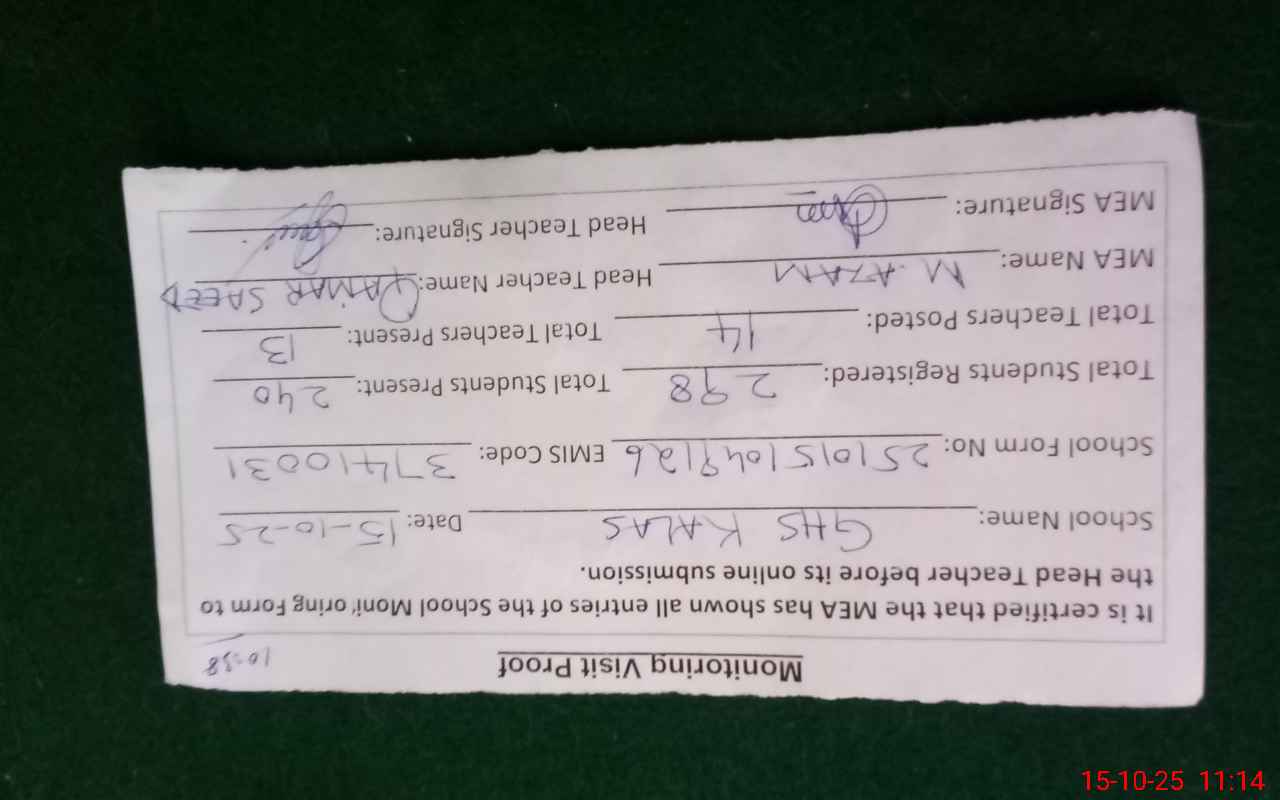 Monitoring Visit Proof
10:38
It is certified that the MEA has shown all entries of the School Monitoring Form to
the Head Teacher before its online submission.
School Name: GHS KALAS Date: 15-10-25
School Form No: 2510151049126 EMIS Code: 37410031
Total Students Registered: 298 Total Students Present: 240
Total Teachers Posted: 14 Total Teachers Present: 13
MEA Name: M. AZAM Head Teacher Name: QAMAR SAEED
MEA Signature: Head Teacher Signature:
15-10-25 11:14